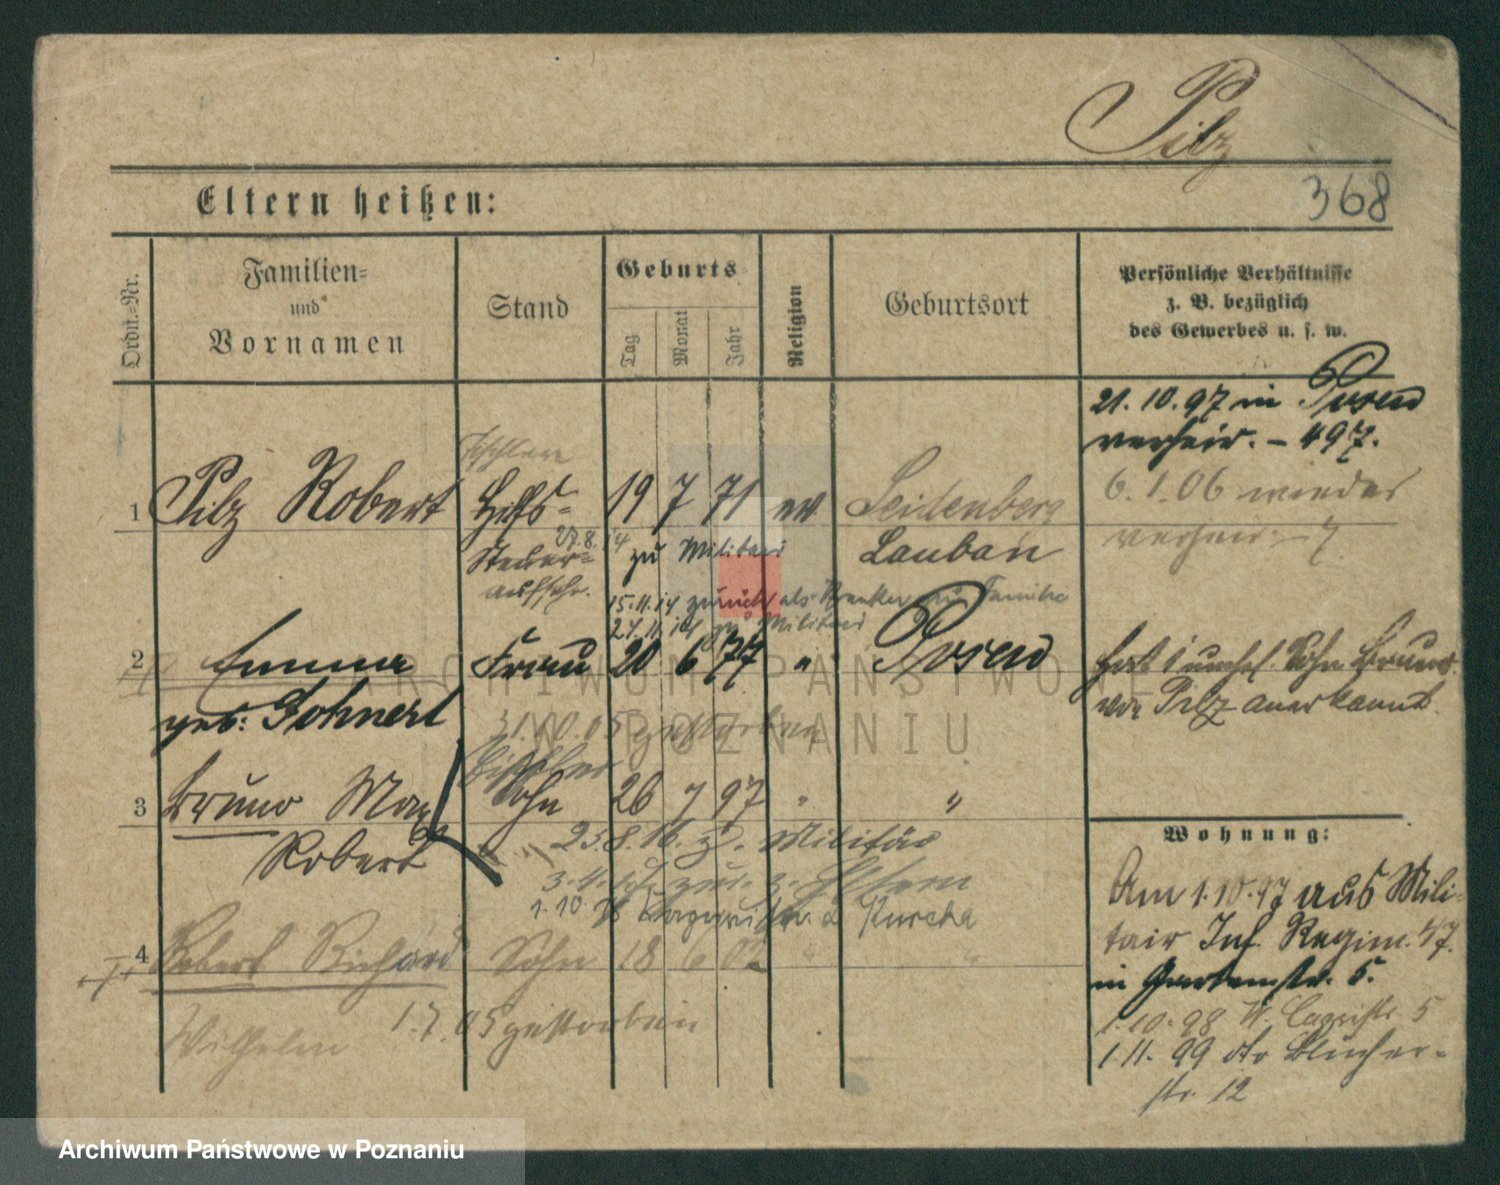 Pilz
368
Eltern heißen:
Ordn.-Nr.
Familien-
und
Vornamen
Stand
Geburts-
Tag
Monat
Jahr
Religion
Geburtsort
Persönliche Verhältnisse
z. B. bezüglich
des Gewerbes u. s. w.
21. 10. 97 in Posen
verheir. - 497.
6. 1. 06 wieder
verheir.
1 Pilz Robert Hilfs- 19 7 71 ev Seidenberg
27.8.14 zu Militair Lauban
Steuer-
aufseh.
15.11.14 zurück als Kranker zur Familie
27.11.14 zu Militair
2 Emma Frau 20 6 77 " Posen
geb: Gohnert
31.10.05 gestorben
Hat 1 unehel. Sohn Bruno
von Pilz anerkannt.
3 Bruno Max Sohn 26 7 97 " "
Robert
23.8.16. z. Militär
zur. z. Eltern
1.10.18 Kurcka
4 Robert Richard Sohn 18 6 02 " "
Wilhelm 1.7.05 gestorben
Wohnung:
Am 1.10.97 aus Mili-
tair Inf. Regim. 47.
in Gartenstr. 5.
1.10.98 W. 5
1.11.99 dto Blücher-
str. 12
ARCHIWUM PAŃSTWOWE
W POZNANIU
Archiwum Państwowe w Poznaniu